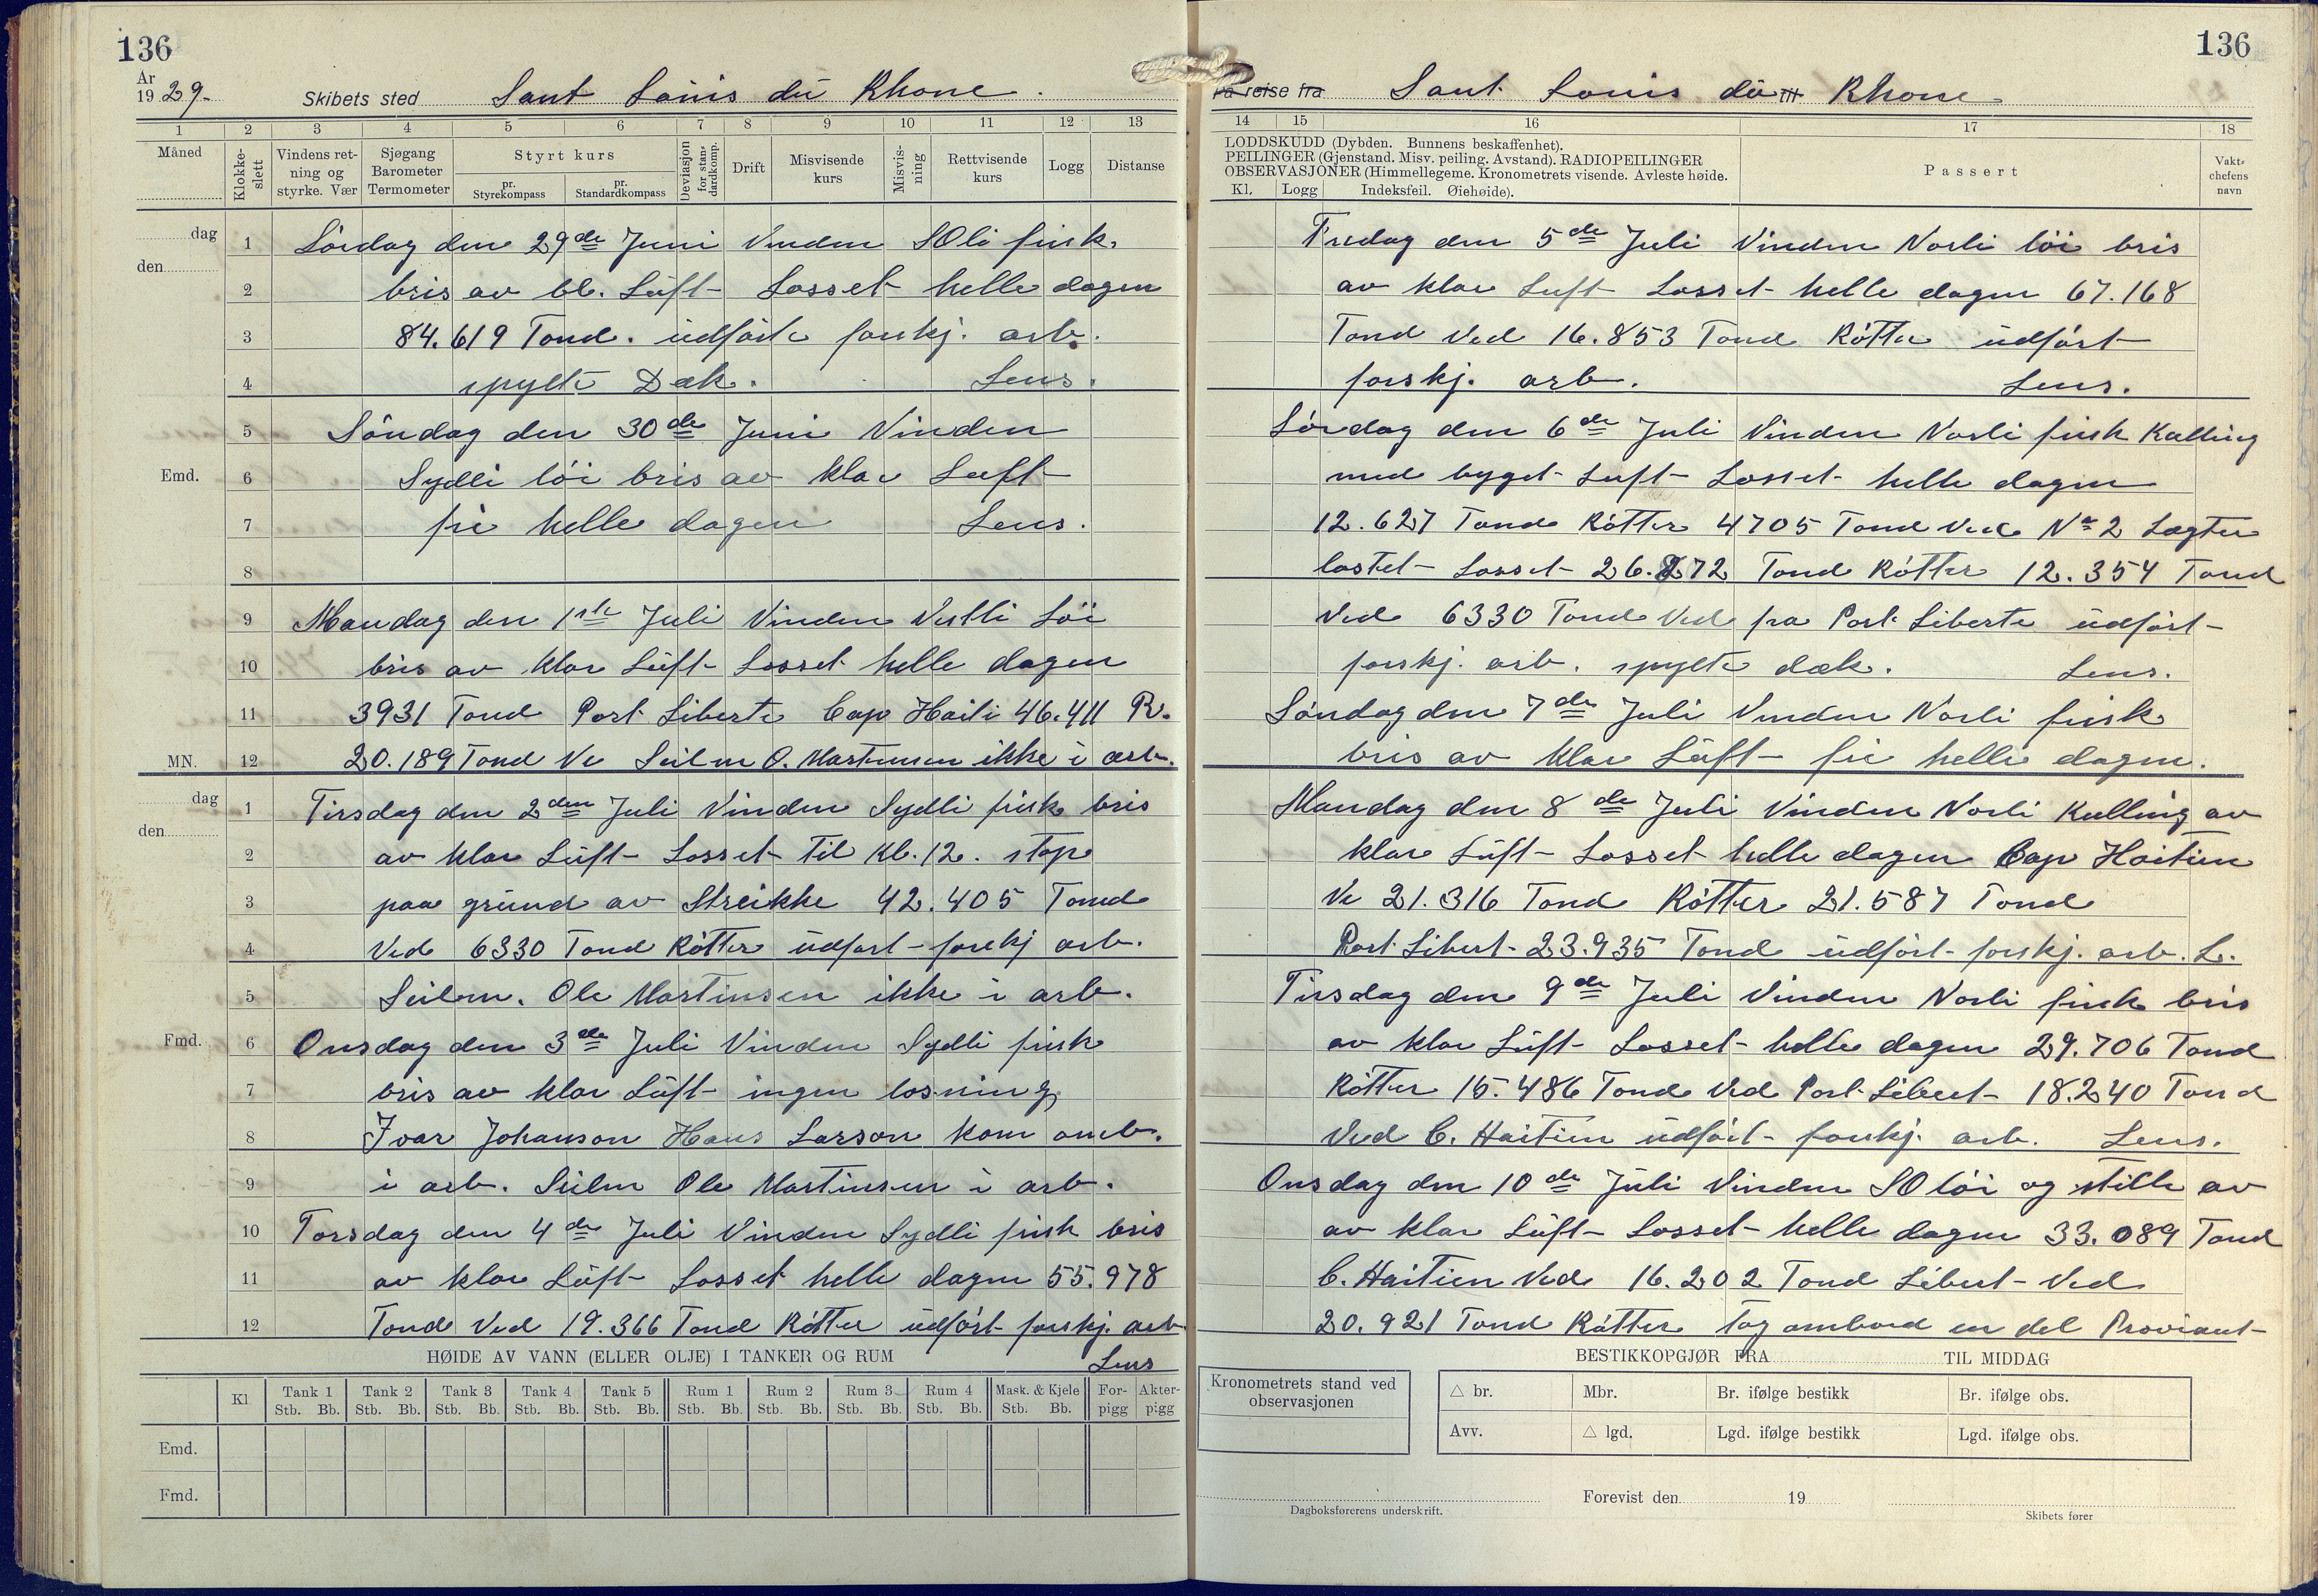 136
År
1929.
Skibets sted Sant Louis du Rhone.
1 2 3 4 5 6 7 8 9 10 11 12 13
Måned
Klokke-slett
Vindens retning og styrke. Vær
Sjøgang Barometer Termometer
Styrt kurs
pr. Styrekompass
pr. Standardkompass
Deviasjon for standardkomp.
Drift
Misvisende kurs
Misvisning
Rettvisende kurs
Logg
Distanse
dag
den
1 Lördag den 29de Juni Vinden SOli frisk
2 bris av bl. Luft Losset helle dagen
3 84.619 Tond. udført forskj. arb.
4 spylte Dæk. Lens.
5 Söndag den 30de Juni Vinden
Emd. 6 Sydli löi bris av klar Luft
7 fri helle dagen Lens.
8
9 Mandag den 1ste Juli Vinden Vestli Löi
10 bris av klar Luft Losset helle dagen
11 3931 Tond Port Liberte Cap Haiti 46.411 R.
MN. 12 20.189 Tond Ve Seilm O. Martinsen ikke i arb.
dag
den
1 Tirsdag den 2den Juli Vinden Sydli frisk bris
2 av klar Luft Losset Til Kl. 12. stop
3 paa grund av Streikke 42.405 Tond
4 Ved 6330 Tond Rötter udført forskj arb.
5 Seilm. Ole Martinsen ikke i arb.
Fmd. 6 Onsdag den 3de Juli Vinden Sydli frisk
7 bris av klar Luft ingen losning
8 Ivar Johanson Hans Larson kom omb.
9 i arb. Seilm Ole Martinsen i arb.
10 Torsdag den 4de Juli Vinden Sydli frisk bris
11 av klar Luft Losset helle dagen 55.978
12 Tond Ved 19.366 Tond Rötter udført forskj. arb
Lens
HØIDE AV VANN (ELLER OLJE) I TANKER OG RUM
Kl Tank 1 Tank 2 Tank 3 Tank 4 Tank 5 Rum 1 Rum 2 Rum 3 Rum 4 Mask. & Kjele For-pigg Akter-pigg
Stb. Bb. Stb. Bb. Stb. Bb. Stb. Bb. Stb. Bb. Stb. Bb. Stb. Bb. Stb. Bb. Stb. Bb. Stb. Bb.
Emd.
Fmd.
136
På reise fra Sant Louis du til Rhone
14 15 16 17 18
LODDSKUDD (Dybden. Bunnens beskaffenhet).
PEILINGER (Gjenstand. Misv. peiling. Avstand). RADIOPEILINGER
OBSERVASJONER (Himmellegeme. Kronometrets visende. Avleste høide.
Kl. Logg Indeksfeil. Øiehøide).
Passert
Vaktchefens navn
Fredag den 5de Juli Vinden Norli löi bris
av klar Luft Losset helle dagen 67.168
Tond Ved 16.853 Tond Rötter udført
forskj. arb. Lens.
Lördag den 6de Juli Vinden Norli frisk Kulling
med byget Luft Losset helle dagen
12.627 Tond Rötter 4705 Tond Ved No 2 Lægter
lastet Losset 26.272 Tond Rötter 12.354 Tond
Ved 6330 Tond Ved fra Port Liberte udført
forskj. arb. spylte dæk. Lens.
Söndag den 7de Juli Vinden Norli frisk
bris av klar Luft fri helle dagen.
Mandag den 8de Juli Vinden Norli Kulling av
klar Luft Losset helle dagen Cap Haitien
Ve 21.316 Tond Rötter 21.587 Tond
Port Libert 23.935 Tond udført forskj. arb. L.
Tirsdag den 9de Juli Vinden Norli frisk bris
av klar Luft Losset helle dagen 29.706 Tond
Rötter 15.486 Tond Ved Port Libert 18.240 Tond
Ved C. Haitien udført forskj. arb. Lens.
Onsdag den 10de Juli Vinden SO löi og stille av
av klar Luft Losset helle dagen 33.089 Tond
C. Haitien Ved 16.202 Tond Libert Ved
20.921 Tond Rötter Tog ombord en del Proviant
BESTIKKOPGJØR FRA TIL MIDDAG
Kronometrets stand ved observasjonen
△ br. Mbr. Br. ifølge bestikk Br. ifølge obs.
Avv. △ lgd. Lgd. ifølge bestikk Lgd. ifølge obs.
Forevist den 19
Dagboksførerens underskrift.
Skibets fører